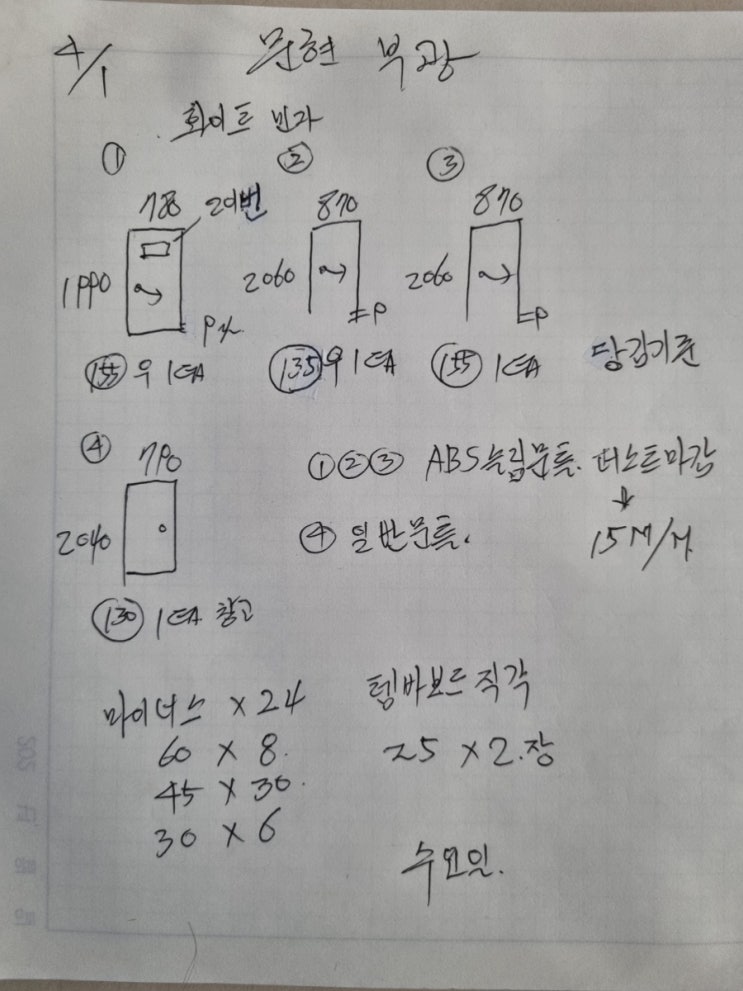 4/1 문현 부광
화이트 민자
① ② ③
780 20번 870 870
1990 2060 2060
P P
155 우 1EA 135 우 1EA 155 1EA 당김기준
④ 790 ①②③ ABS 슬림문틀.
2040 ④ 일반문틀. 15M/M
130 1EA 창고
마이너스 x 24 템바보드 직각
60 x 8. 25 x 2.장
45 x 30.
30 x 6
수요일.